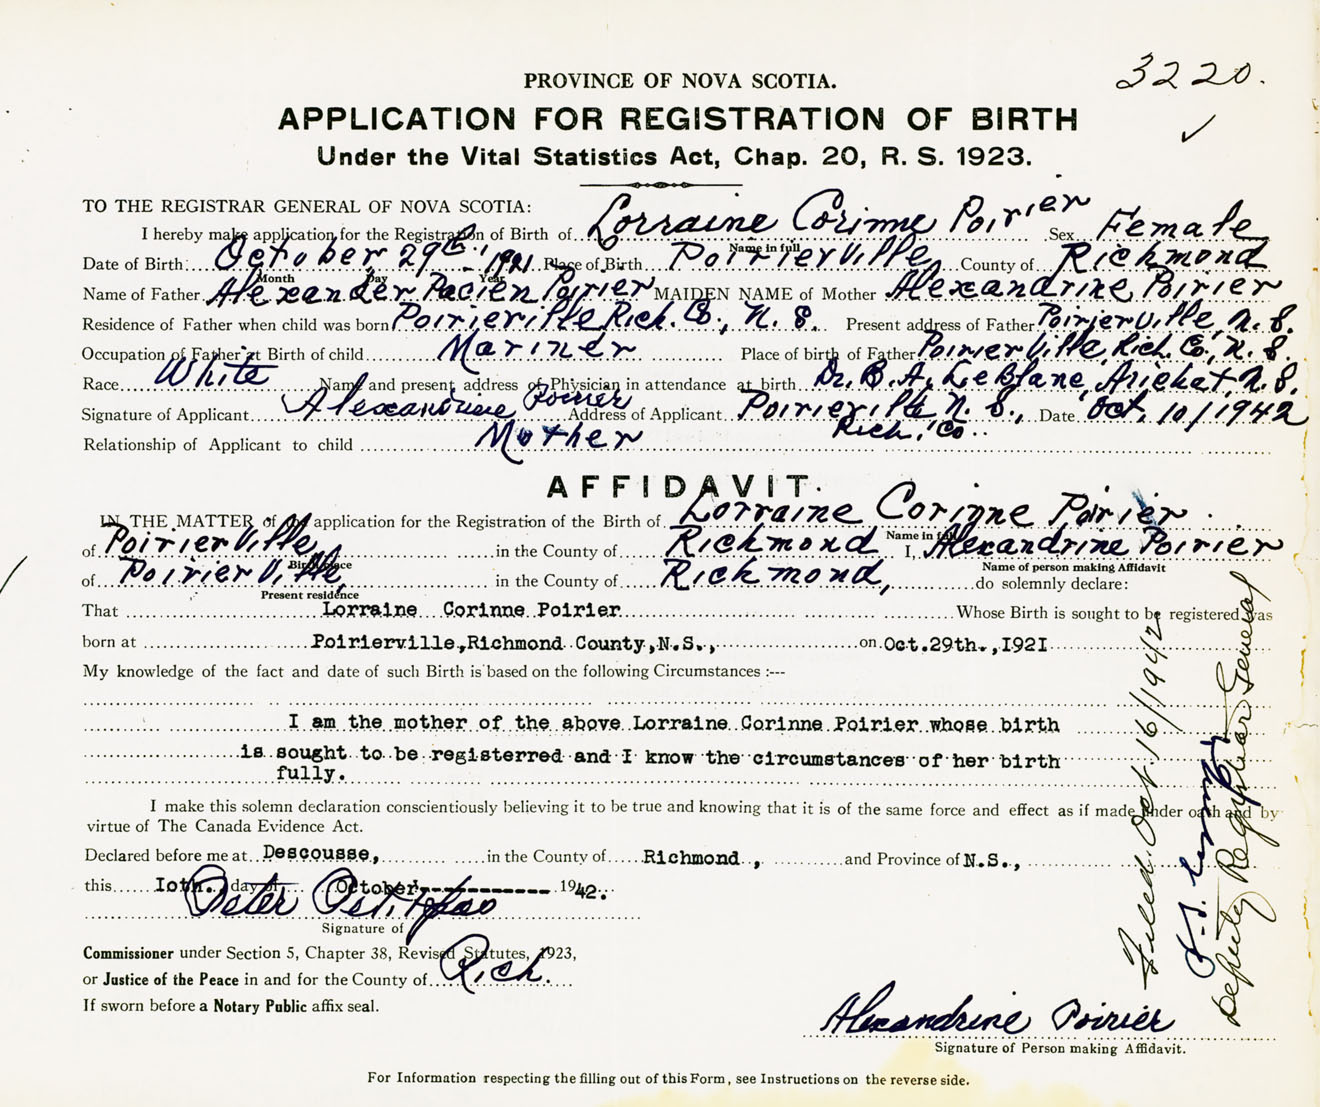 3220.
PROVINCE OF NOVA SCOTIA.
APPLICATION FOR REGISTRATION OF BIRTH
Under the Vital Statistics Act, Chap. 20, R. S. 1923.
TO THE REGISTRAR GENERAL OF NOVA SCOTIA:
I hereby make application for the Registration of Birth of Lorraine Corinne Poirier Sex Female
Name in full
Date of Birth: October 29th 1921 Place of Birth Poirierville, County of Richmond
Month Day Year
Name of Father Alexander Pacien Poirier MAIDEN NAME of Mother Alexandrine Poirier
Residence of Father when child was born Poirierville, Rich. Co., N. S. Present address of Father Poirierville, N. S.
Occupation of Father at Birth of child Mariner Place of birth of Father Poirierville, Rich. Co., N. S.
Race White Name and present address of Physician in attendance at birth Dr. B. A. LeBlanc, Arichat, N. S.
Signature of Applicant Alexandrine Poirier Address of Applicant Poirierville N. S., Date Oct. 10/1942
Rich. Co.
Relationship of Applicant to child Mother
AFFIDAVIT.
IN THE MATTER of the application for the Registration of the Birth of Lorraine Corinne Poirier
Name in full
of Poirierville, in the County of Richmond I, Alexandrine Poirier
Birth place Name of person making Affidavit
of Poirierville, in the County of Richmond, do solemnly declare:
Present residence
That Lorraine Corinne Poirier Whose Birth is sought to be registered was
born at Poirierville, Richmond County, N.S., on Oct. 29th., 1921
My knowledge of the fact and date of such Birth is based on the following Circumstances :---
I am the mother of the above Lorraine Corinne Poirier whose birth
is sought to be registerred and I know the circumstances of her birth
fully.
I make this solemn declaration conscientiously believing it to be true and knowing that it is of the same force and effect as if made under oath and by
virtue of The Canada Evidence Act.
Declared before me at Descousse, in the County of Richmond, and Province of N.S.,
this Ioth. day of October 1942.
Peter
Signature of
Commissioner under Section 5, Chapter 38, Revised Statutes, 1923,
or Justice of the Peace in and for the County of Rich.
If sworn before a Notary Public affix seal.
Alexandrine Poirier
Signature of Person making Affidavit.
For Information respecting the filling out of this Form, see Instructions on the reverse side.
Filed. Oct. 16/1942
Deputy Registrar General